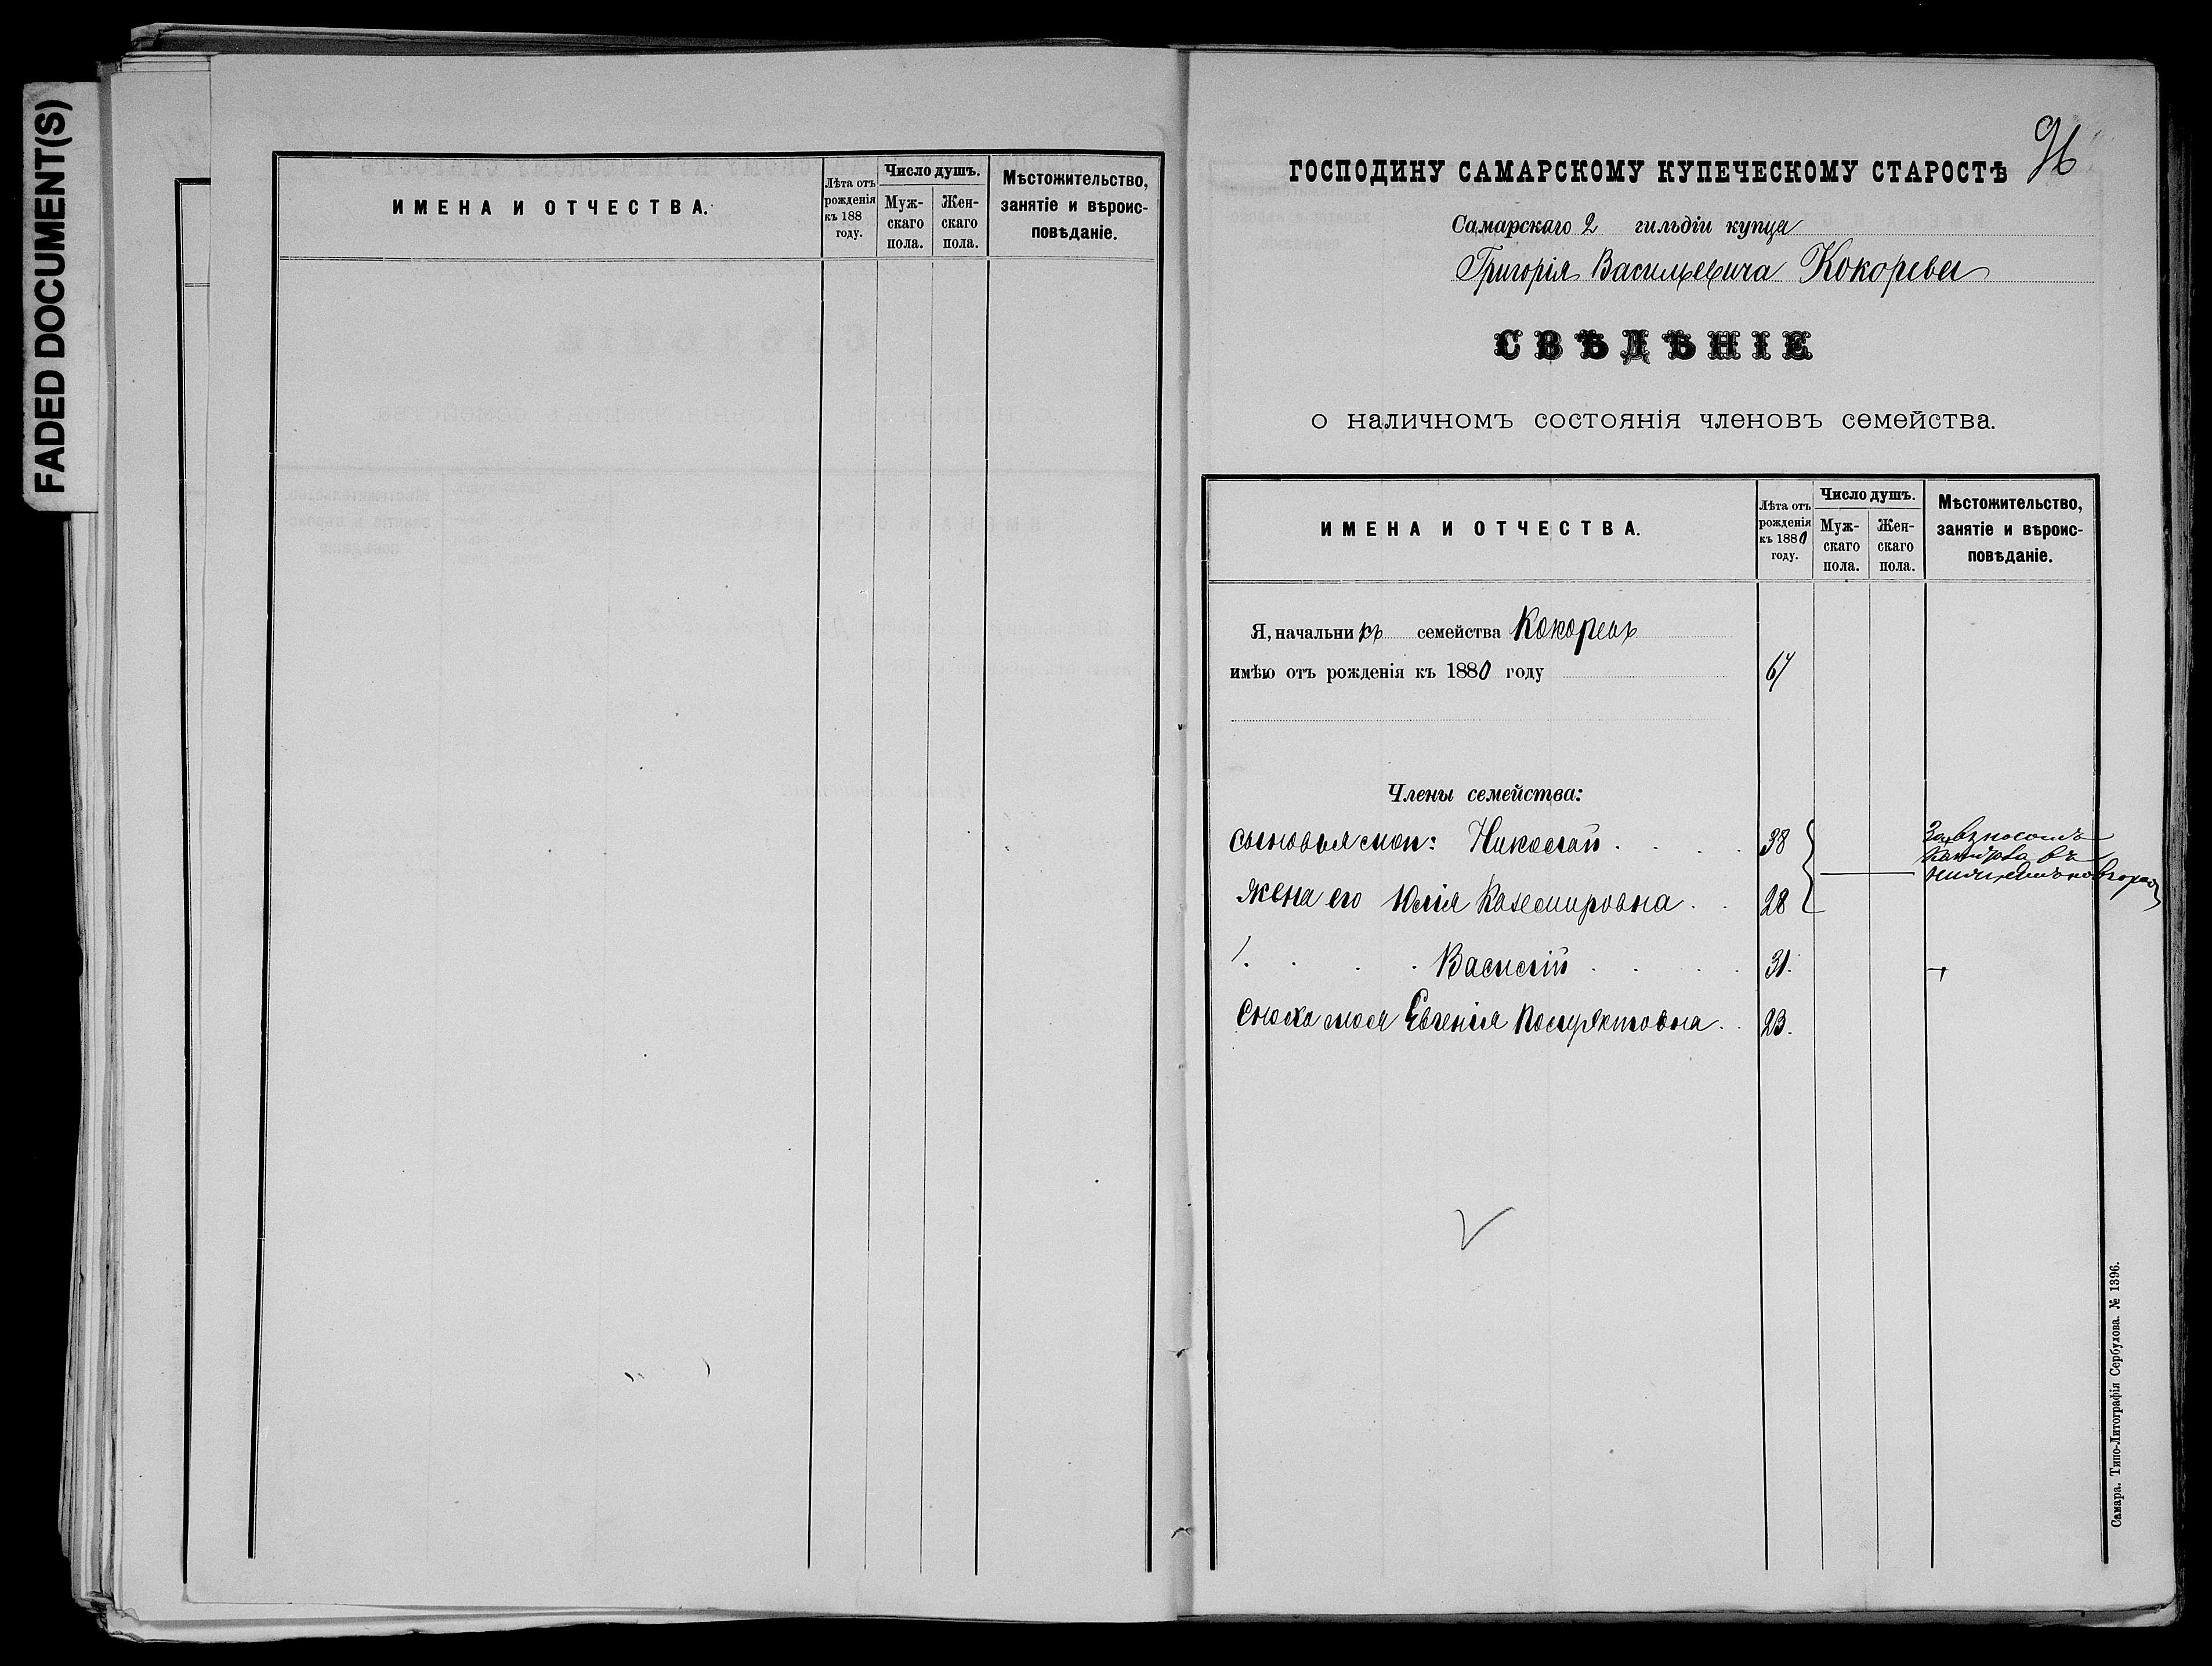 FADED DOCUMENT(S)
ИМЕНА И ОТЧЕСТВА.
Лѣта отъ рожденія къ 188 году.
Число душъ.
Муж-скаго пола.
Жен-скаго пола.
Мѣстожительство, занятіе и вѣроис-повѣданіе.
96
ГОСПОДИНУ САМАРСКОМУ КУПЕЧЕСКОМУ СТАРОСТѢ
Самарскаго 2 гильдіи купца
Григорія Васильевича Кокорева
СВѢДѢНІЕ
о наличномъ состоянія членовъ семейства.
ИМЕНА И ОТЧЕСТВА.
Лѣта отъ рожденія къ 1880 году.
Число душъ.
Муж-скаго пола.
Жен-скаго пола.
Мѣстожительство, занятіе и вѣроис-повѣданіе.
Я, начальникъ семейства Кокоревъ
имѣю отъ рожденія къ 1880 году 67
Члены семейства:
сыновья мои: Николай 38
жена его Юлія Каземировна 28
Василій 31.
Сноха моя Евгенія 23.
Самара. Типо-Литографія Сербулова. № 1396.